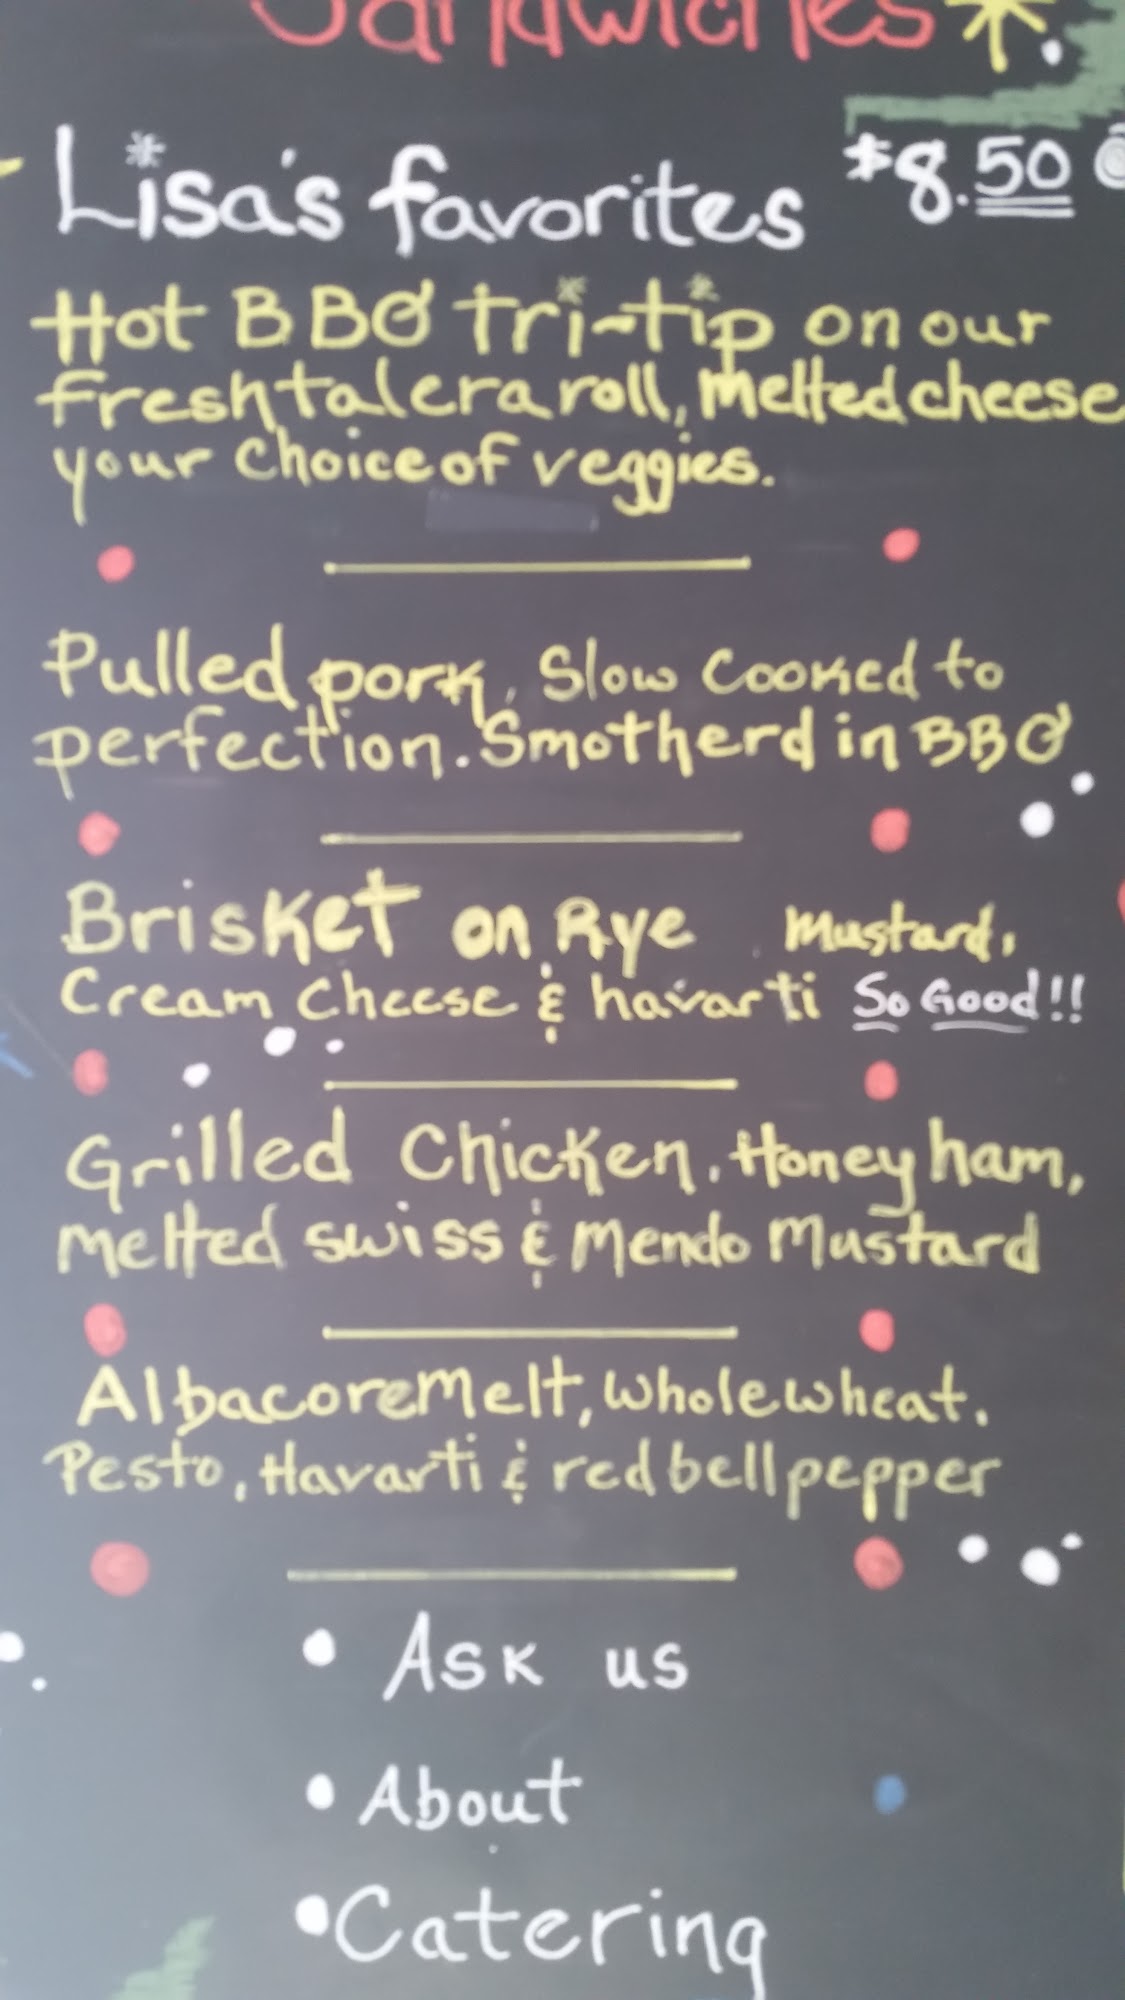 Sandwiches
Lisa's favorites $8.50
Hot BBQ tri-tip on our
fresh talera roll, Melted cheese
your choice of veggies.
Pulled pork, Slow Cooked to
perfection. Smotherd in BBQ
Brisket on Rye Mustard,
Cream Cheese & havarti So Good!!
Grilled Chicken, Honey ham,
Melted swiss & Mendo Mustard
Albacore Melt, whole wheat.
Pesto, Havarti & red bell pepper
• Ask us
• About
• Catering